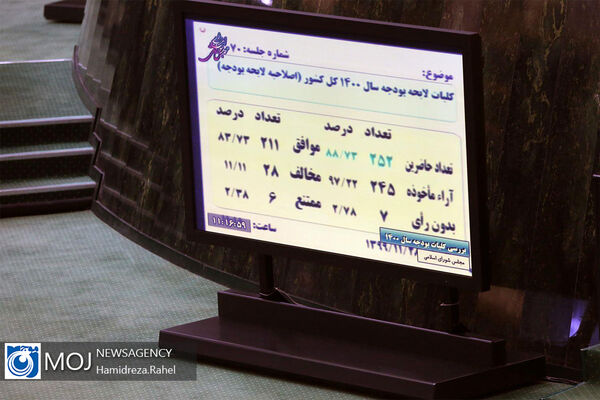 شماره جلسه: ۷۰
موضوع:
کلیات لایحه بودجه سال ۱۴۰۰ کل کشور (اصلاحیه لایحه بودجه)
تعداد درصد تعداد درصد
تعداد حاضرین ۲۵۲ ۸۸/۷۳ موافق ۲۱۱ ۸۳/۷۳
آراء مأخوذه ۲۴۵ ۹۷/۲۲ مخالف ۲۸ ۱۱/۱۱
بدون رأی ۷ ۲/۷۸ ممتنع ۶ ۲/۳۸
۱۳۹۹/۱۱/۲۸ ساعت: ۱۱:۱۶:۵۹
بررسی کلیات بودجه سال ۱۴۰۰
مجلس شورای اسلامی
MOJ NEWSAGENCY
Hamidreza.Rahel